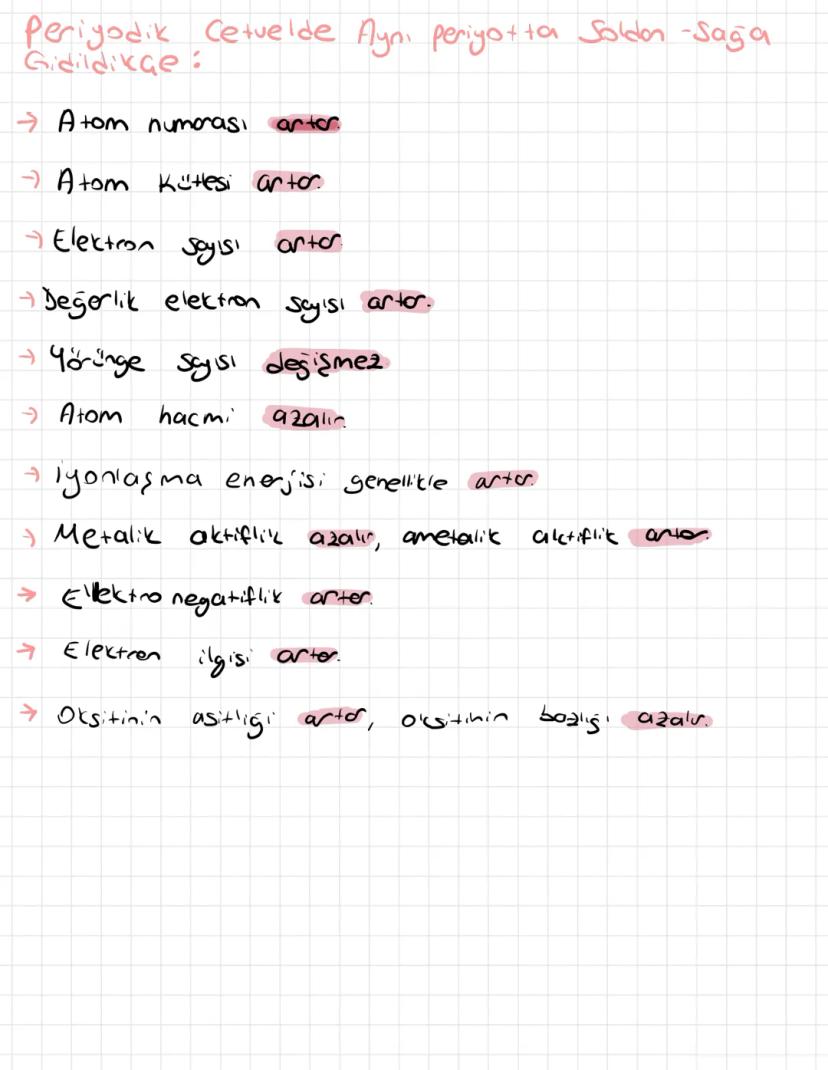 Periyodik Cetvelde Aynı periyotta Soldan -Sağa
Gidildikçe :
→ Atom numarası artar.
→ Atom Kütlesi artar.
→ Elektron sayısı artar.
→ Değerlik elektron sayısı artar.
→ Yörünge sayısı değişmez
→ Atom hacmi azalır.
→ İyonlaşma enerjisi genellikle artar.
→ Metalik aktiflik azalır, ametalik aktiflik artar.
→ Elektronegatiflik artar.
→ Elektron ilgisi artar.
→ Oksitinin asitliği artar, oksitinin bazlığı azalır.